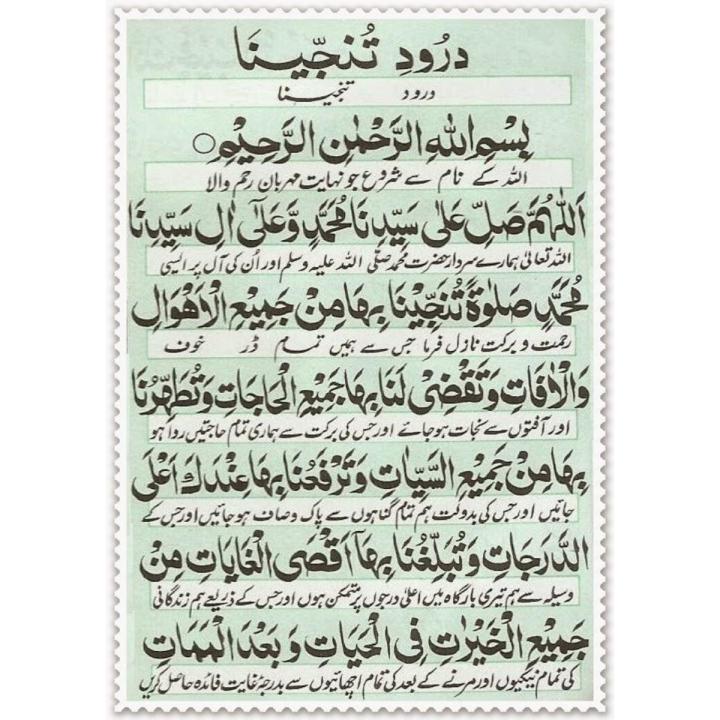 درُودِ تُنَجِّينَا
درود تنجینا
بِسْمِ اللهِ الرَّحْمٰنِ الرَّحِيْمِ ○
اللہ کے نام سے شروع جو نہایت مہربان رحم والا
اَللّٰهُمَّ صَلِّ عَلٰى سَيِّدِنَا مُحَمَّدٍ وَّعَلٰٓى اٰلِ سَيِّدِنَا
اللہ تعالیٰ ہمارے سردار حضرت محمد صلّی اللہ علیہ وسلم اور اُن کی آل پر ایسی
مُحَمَّدٍ صَلٰوةً تُنَجِّيْنَا بِهَا مِنْ جَمِيْعِ الْاَهْوَالِ
رحمت و برکت نازل فرما جس سے ہمیں تمام ڈر خوف
وَالْاٰفَاتِ وَتَقْضِىْ لَنَا بِهَا جَمِيْعِ الْحَاجَاتِ وَتُطَهِّرُنَا
اور آفتوں سے نجات ہوجائے اور جس کی برکت سے ہماری تمام حاجتیں روا ہو
بِهَا مِنْ جَمِيْعِ السَّيِّاٰتِ وَتَرْفَعُنَا بِهَا عِنْدَكَ اَعْلَى
جائیں اور جس کی بدولت ہم تمام گناہوں سے پاک وصاف ہوجائیں اور جس کے
الدَّرَجَاتِ وَتُبَلِّغُنَا بِهَآ اَقْصَى الْغَايَاتِ مِنْ
وسیلہ سے ہم تیری بارگاہ میں اعلیٰ درجوں پر متمکن ہوں اور جس کے ذریعے ہم زندگانی
جَمِيْعِ الْخَيْرٰتِ فِى الْحَيَاتِ وَبَعْدَ الْمَمَاتِ
کی تمام نیکیوں اور مرنے کے بعد کی تمام اچھائیوں سے بدرجۂ غایت فائدہ حاصل کریں